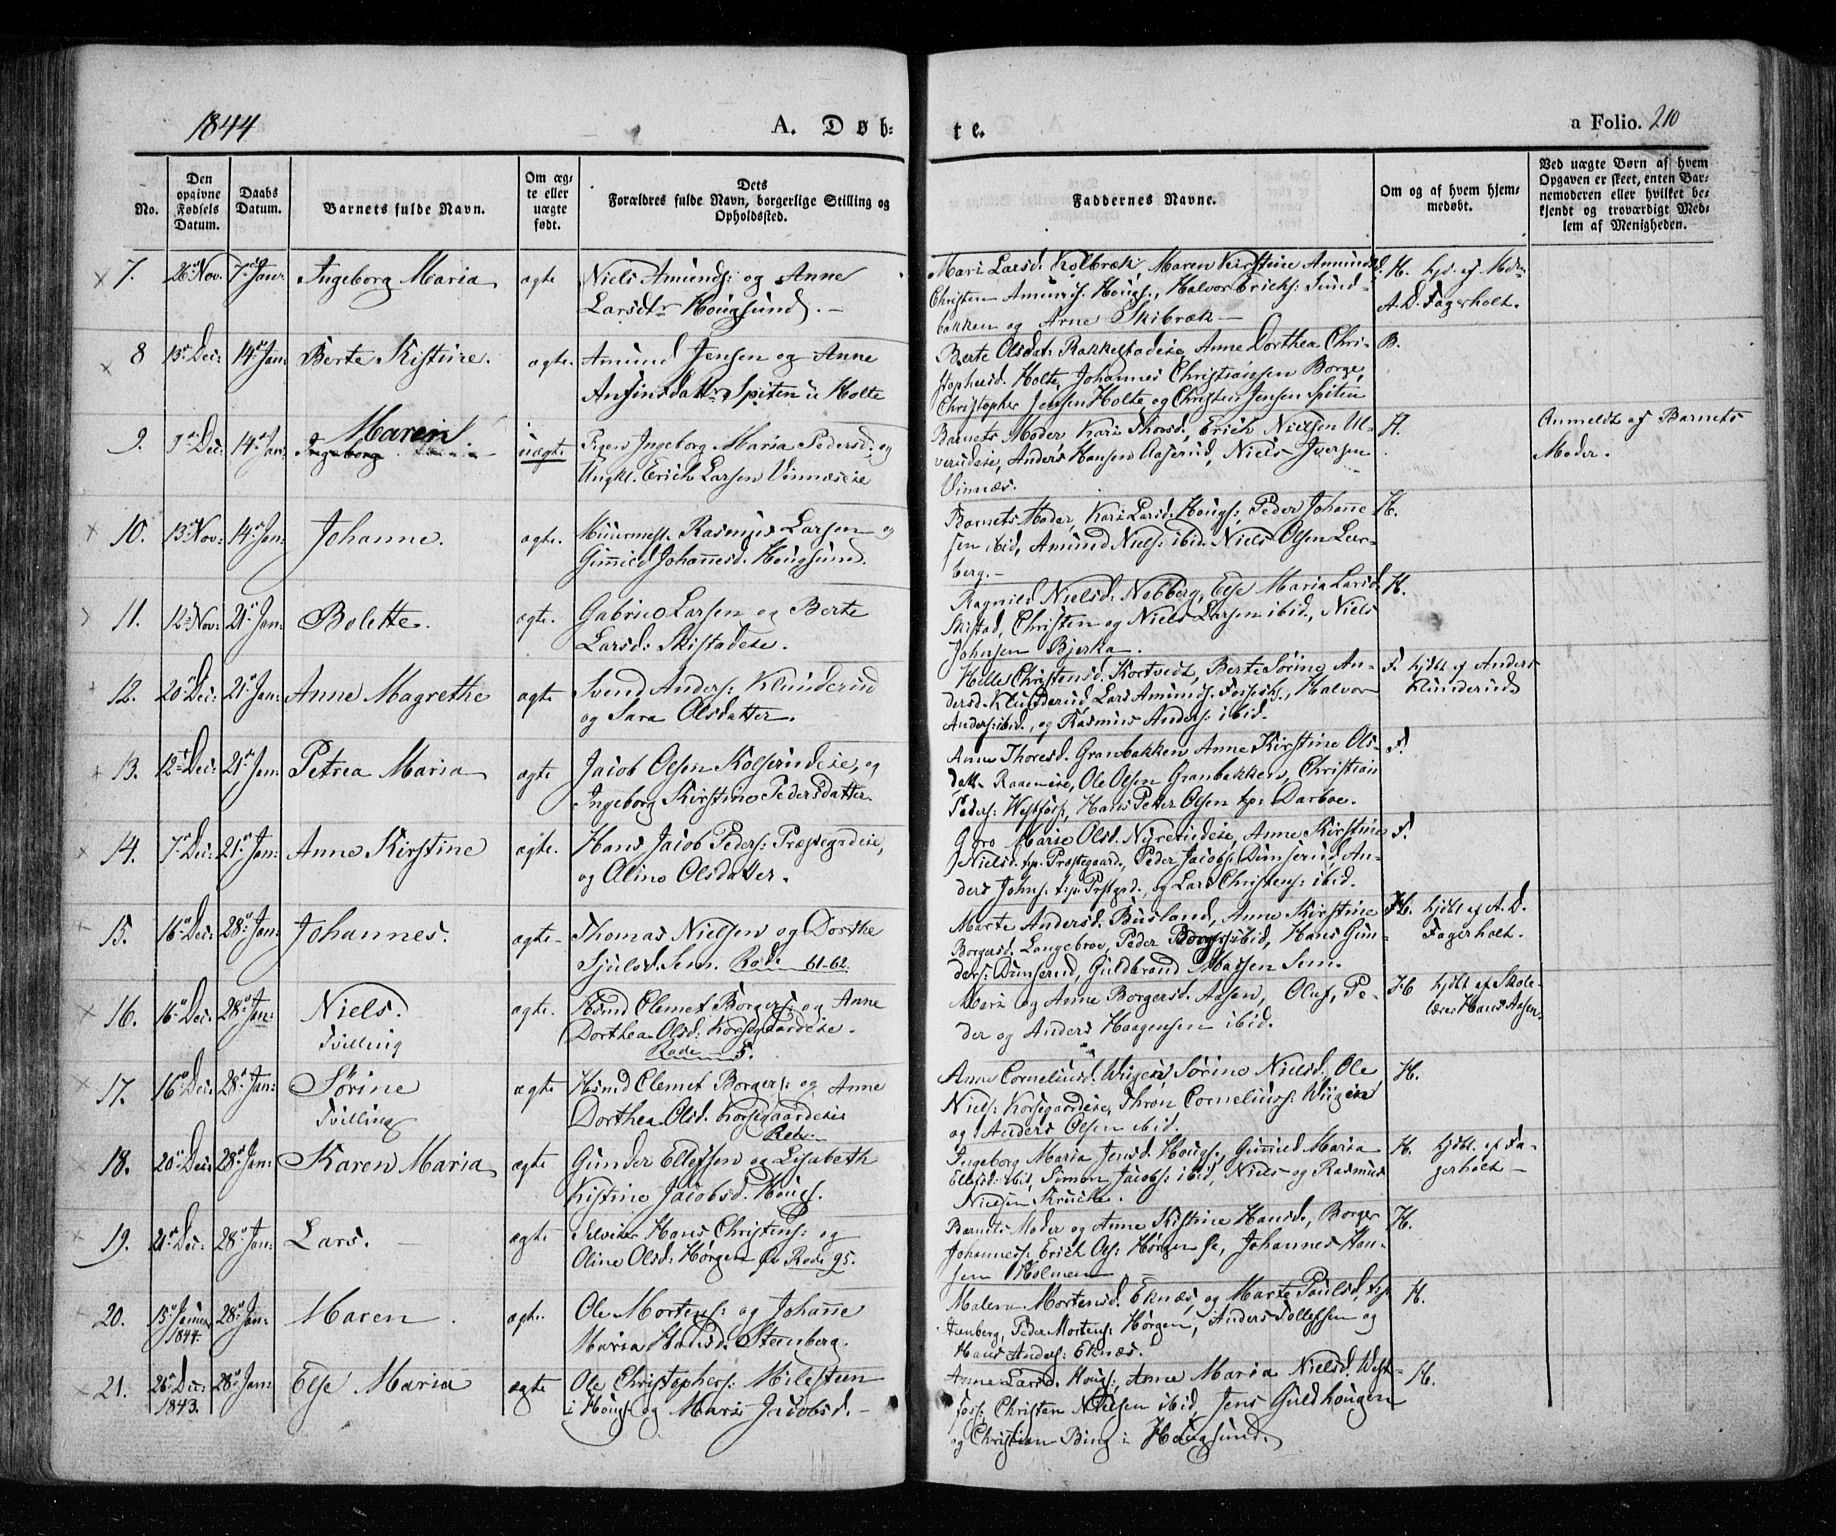 1844
A. Døb- te.
a Folio. 210
No.
Den opgivne Fødsels Datum.
Daabs Datum.
Barnets fulde Navn.
Om ægte eller uægte født.
Dets Forældres fulde Navn, borgerlige Stilling og Opholdssted.
Faddernes Navne.
Om og af hvem hjemmedøbt.
Ved uægte Børn af hvem Opgaven er skeet, enten Barnemoderen eller hvilket bekjendt og troværdigt Medlem af Menigheden.
7. 26de Nov. 7de Jan. Ingeborg Maria ægte Niels Amunds: og Anne
Larsdtr Hougsund. –
Mari Larsd. Kolbræk, Maren Kirstine Amundsd. H. hjd. af
Christen Amunds. Hougs., Halvor Ericks: Sund- A. D. Fagerholt.
bakken og Arne Skibræk –
8 13de Dec: 14de Jan: Berte Kistine. ægte. Amund Jensen og Anne
Anfinsdattr Spiten u Holte
Berte Olsdat: Rakkestadeie, Anne Dorthea Chri- B.
stophersd. Holte, Johannes Christiansen Borge,
Christopher Jensen Holte og Christen Jensen Spiten
9. 9de Dec: 14de Jan: Ingeborg Maren uægte Pigen Ingeborg Maria Pedersd. og
Ungkl. Erich Larsen Vinnæseie
Barnets Moder Kari Thorsd., Erich Nielsen Ul- H. Anmeldt af Barnets
verudeie, Anders Hansen Aaserud, Niels Iversen Moder.
Vinnæs.
10. 13de Nov: 14de Jan: Johanne. ægte. Muurmest. Rasmus Larsen og
Gunnild Johannesd. Hougsund.
Barnets Moder, Kari Larsd. Hougs:, Peder Johanne- H.
sen ibid, Amund Niels: ibid. Niels Olsen Ler-
berg. –
11. 12te Nov: 21de Jan: Bolette. ægte. Gabriel Larsen og Berte
Larsd: Skistadeie.
Ragnild Nielsd: Nebberg, Else Maria Larsd. H.
Skistad, Christen og Niels Larsen ibid., Niels
Johnsen Bjerka.
12. 20de Dec: 21de Jan: Anne Magrethe ægte Svend Anders: Klunderud
og Sara Olsdatter.
Helle Christensd. Kortvedt, Berte Sørine An- F. hjdt af Anders
dersd. Klunderud, Lars Amunds. Fossesh., Halvor Klunderud
Anders: ibid., og Rasmus Anders: ibid.
13. 12te Dec: 21de Jan: Petrea Maria ægte Jacob Olsen Kolserudeie, og
Ingeborg Kirstine Pedersdatter.
Anne Thoresd. Granbakken Anne Kirstine Ols- F.
datt. Raaeneie, Ole Olsen Granbakken, Christian
Peders: Westfos:, Hans Peter Olsen tp: Darboe.
14. 7de Dec: 21de Jan: Anne Kirstine ægte. Hans Jacob Peders: Præstegrdeie,
og Oline Olsdatter.
Goro Marie Olsd. Nyrerudeie, Anne Kirstine F.
Nielsd. tp. Præstegaard., Peder Jacobs: Dunserud, An-
ders Johns: tp. Prstgrd., og Lars Christens: ibid.
15. 16de Dec: 28de Jan: Johannes. ægte. Thomas Nielsen og Dorthe
Sjulsd. Sem. Rode 61-62.
Marte Andersd. Busland, Anne Kirstine H. hjdt af A. D.
Borgersd. Langebroe, Peder Borgs: ibid, Hans Gun- Fagerholt.
ders: Dunserud, Guldbrand Massen Sem.
16. 16de Dec: 28de Jan: Niels. ægte. Hsmd Clemet Borgers: og Anne
Tvilling Dorthea Olsd: Korsegaardeie.
Rode 5.
Mari og Anne Borgersd. Aasen, Oluf, Pe- H hjdt af Skole-
der og Anders Haagensen ibid. lærer Hans Aasen
17. 16de Dec: 28de Jan: Sørine ægte Hsmd Clemet Borgers: og Anne
Tvilling Dorthea Olsd. Korsegaardeie
Anne Corneliusd. Wiigen Sørine Nielsd. Ole H.
Niels: Korsegaardeie, Thron Cornelius: Wiigen
og Anders Olsen ibid.
18. 20de Dec: 28de Jan: Karen Maria ægte Gunder Ellefsen og Lisabeth
Kistine Jacobsd. Hougs.
Ingeborg Maria Jensd. Hougs., Gunnild Maria H. hjdt. af Fa-
Ellefsd: ibid, Simon Jacobs: ibid, Niels og Rasmus gerholt –
Nielsen Krucke.
19. 21de Dec: 28de Jan: Lars. – ægte. Selveier Hans Christens: og
Oline Olsd: Hørgen Rode 95.
Barnets Moder og Anne Kistine Hansd., Borger H.
Johannes: Erich Ols: Hørgen, Johannes Han-
sen Holmen
20. 15de Januar 1844. 28de Jan: Maren ægte. Ole Mortens: og Johanne
Maria Hansd. Steenberg.
Malena Mortensd. Eknæs, og Marte Paulsd. H.
Steenberg, Peder Mortens: Hørgen, Anders Tollefsen og
Hans Anders: Eknæs.
21. 26de Dec: 1843. 28de Jan: Else Maria ægte Ole Christophers: Milesteen
i Hougs. og Mari Jacobsd. –
Anne Larsd. Hougs., Anne Maria Nielsd. West- H.
fos: Christen Nielsen ibid, Jens Guldhougen
og Christian Bing i Hougsund.